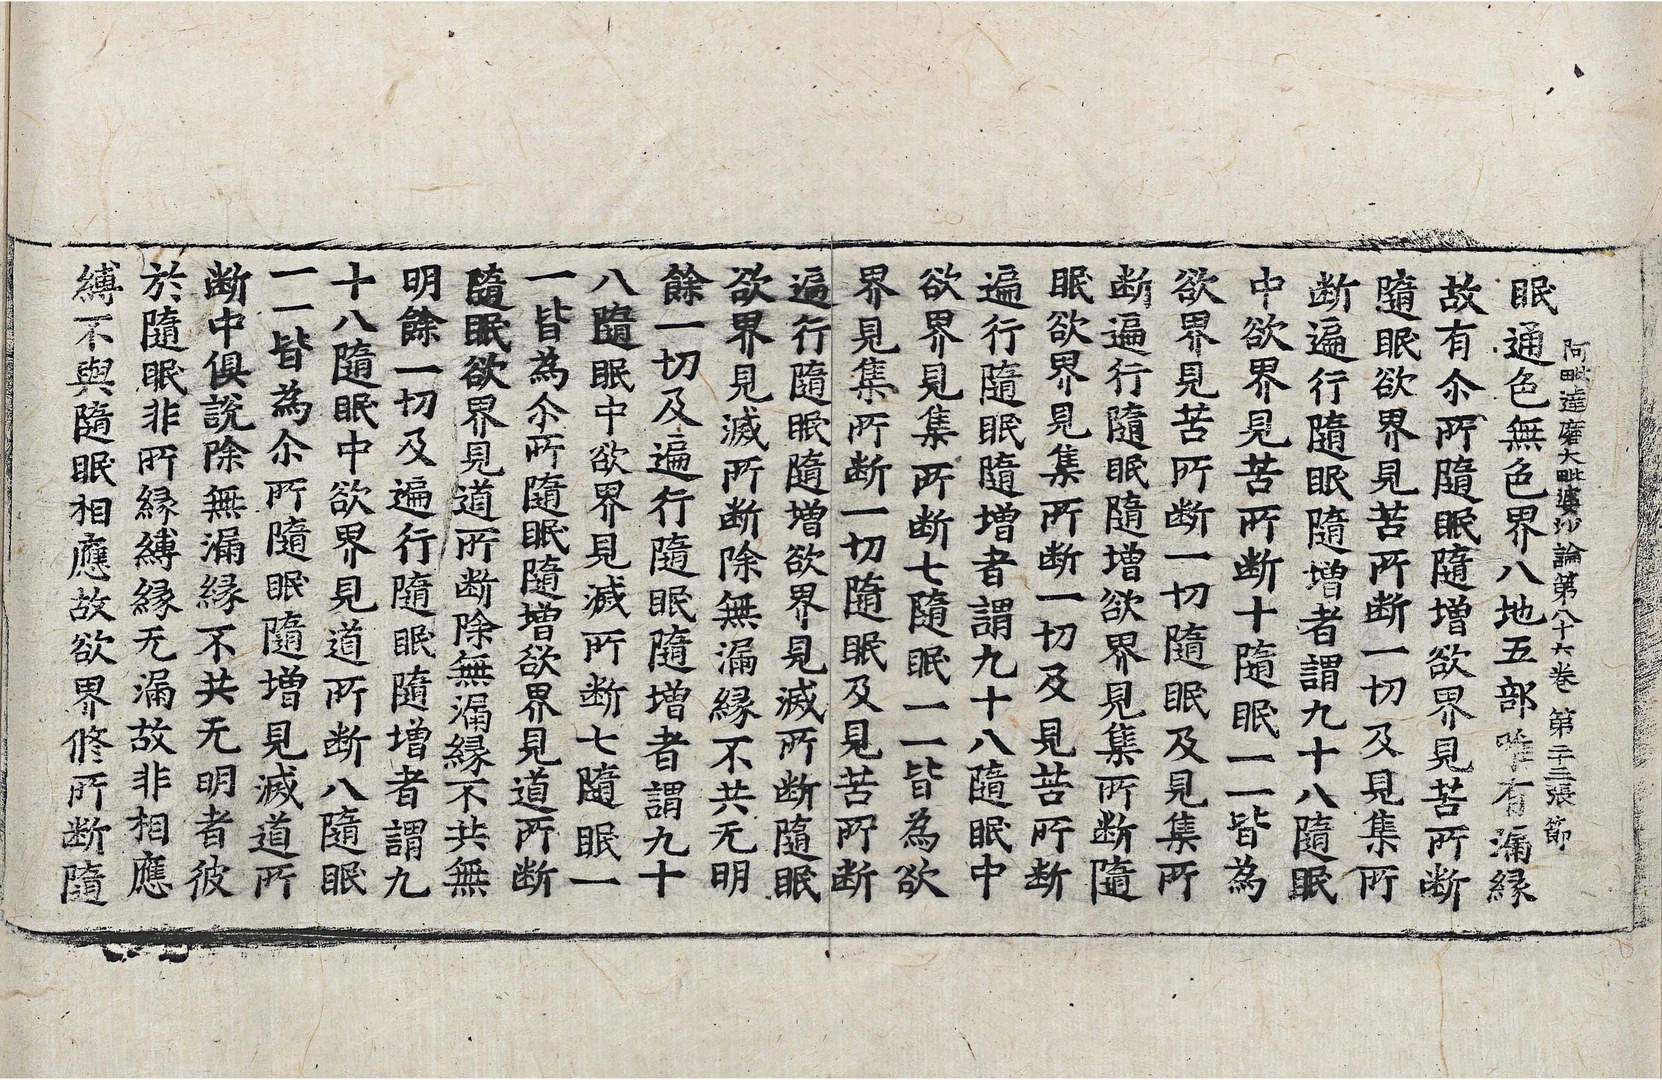 阿毗達磨大毗婆沙論第八十六卷 第二十三張 節
眠通色無色界八地五部唯有漏縁
故有尒所隨眠隨増欲界見苦所断
隨眠欲界見苦所断一切及見集所
断遍行隨眠隨増者謂九十八隨眠
中欲界見苦所断十隨眠一一皆為
欲界見苦所断一切隨眠及見集所
断遍行隨眠隨増欲界見集所断隨
眠欲界見集所断一切及見苦所断
遍行隨眠隨増者謂九十八隨眠中
欲界見集所断七隨眠一一皆為欲
界見集所断一切隨眠及見苦所断
遍行隨眠隨増欲界見滅所断隨眠
欲界見滅所断除無漏縁不共无明
餘一切及遍行隨眠隨増者謂九十
八隨眠中欲界見滅所断七隨眠一
一皆為尒所隨眠隨増欲界見道所断
隨眠欲界見道所断除無漏縁不共無
明餘一切及遍行隨眠隨増者謂九
十八隨眠中欲界見道所断八隨眠
一一皆為尒所隨眠隨増見滅道所
断中俱説除無漏縁不共无明者彼
於隨眠非所縁縛縁无漏故非相應
縛不與隨眠相應故欲界修所断隨